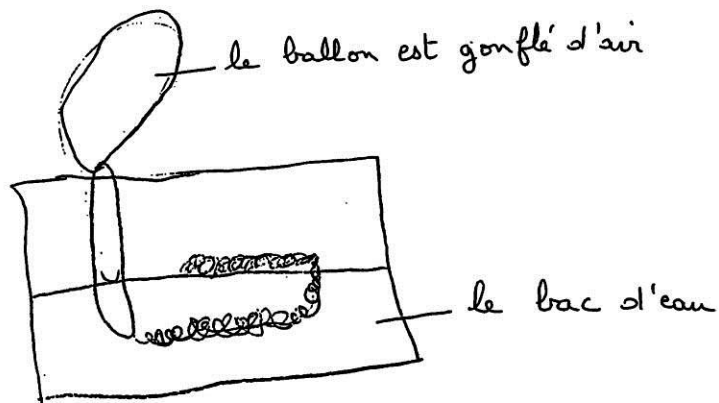 le ballon est gonflé d'air
le bac d'eau